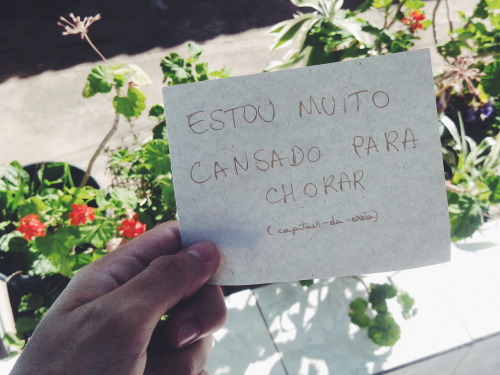 ESTOU MUITO
CANSADO PARA
CHORAR
(capitães-da-areia)